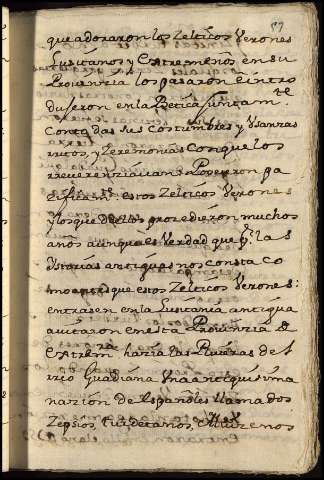 que adoraron los Zelticos Verones
Lusitanos y Extremeños en su
Prouinzia los pasaron e intro
duseron en la Betica Juntamte
Con todas sus Costumbres y Usanzas
rritos, y Zeremonias Con que los
rreuerenziauan Poseyeron pa
zificamte estos Zelticos Verones
y los que de ellos prozedieron muchos
años aunque es Verdad que pr las
Ystorias antiguas nos consta Co
mo antes que estos Zelticos Verones
entrasen en la Lusitania antigua
auitaron en esta Prouinzia de
Extremra hazia las Riueras de l
rrio Guadiana Una antiquisima
nazion de Españoles llamados
Zepsios, turdetanos,